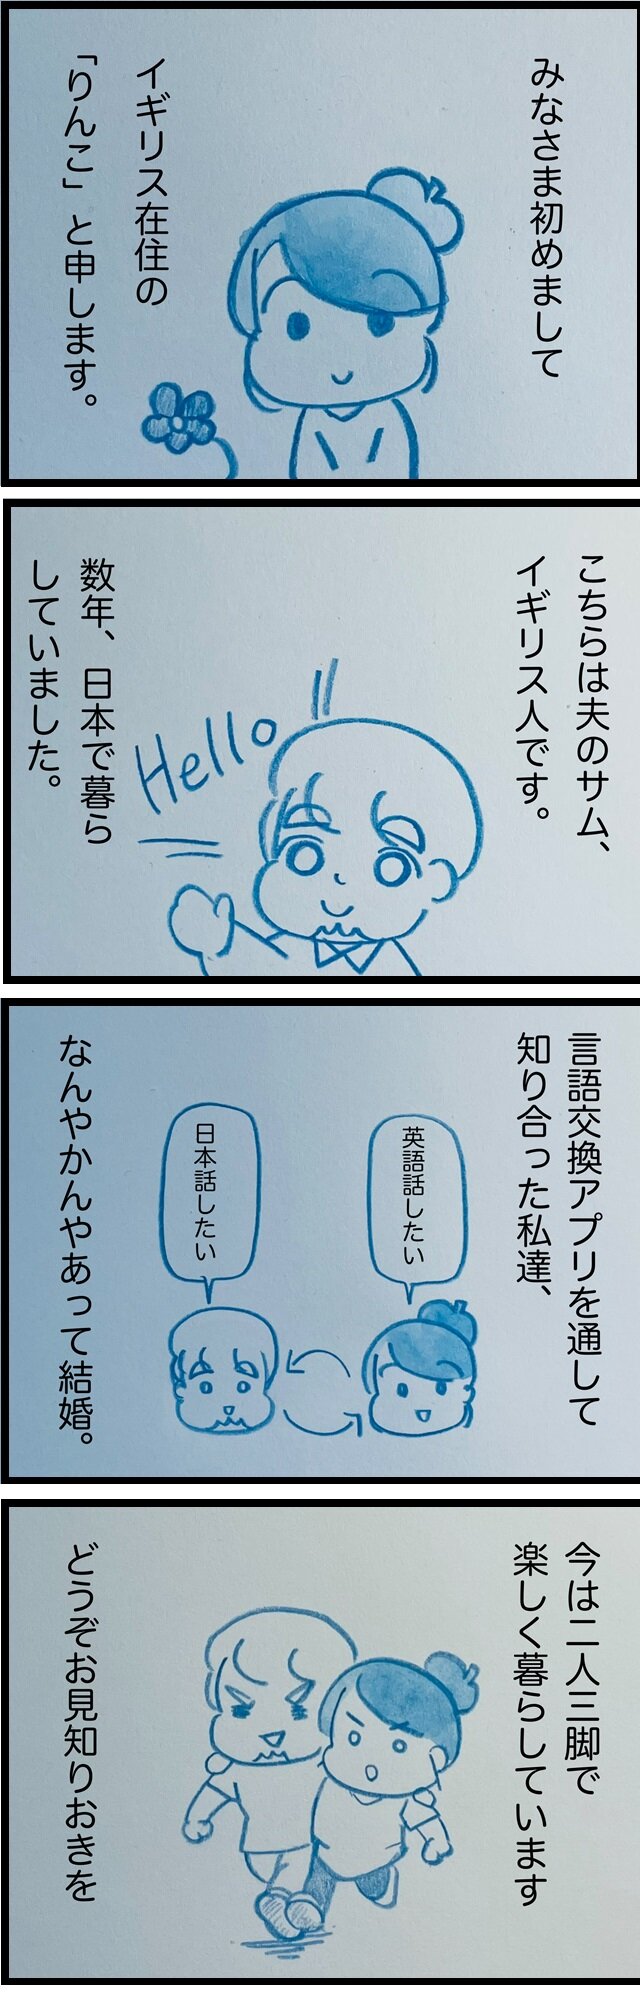 みなさま初めまして
イギリス在住の
「りんこ」と申します。
こちらは夫のサム、
イギリス人です。
Hello
数年、日本で暮ら
していました。
言語交換アプリを通して
知り合った私達、
英語話したい
日本話したい
なんやかんやあって結婚。
今は二人三脚で
楽しく暮らしています
どうぞお見知りおきを